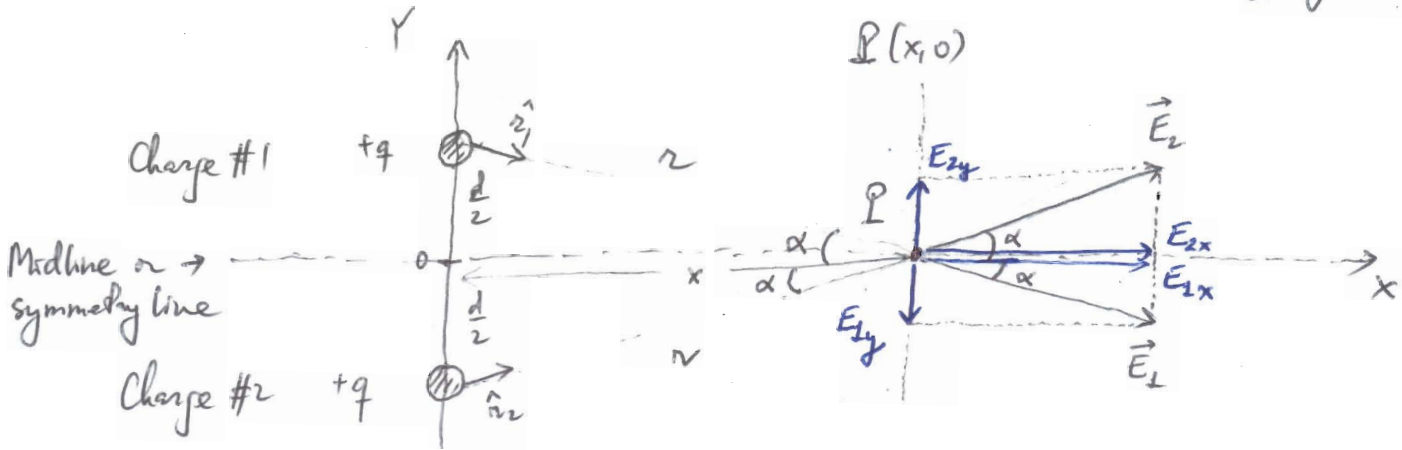 Y
P (x, 0)
Charge #1 +q
r̂₁
r
d/2
E₂y
E⃗₂
P
Midline or →
symmetry line
0
x
α
α
α
α
E₂x
E₁x
X
d/2
E₁y
r
E⃗₁
Charge #2 +q
r̂₂